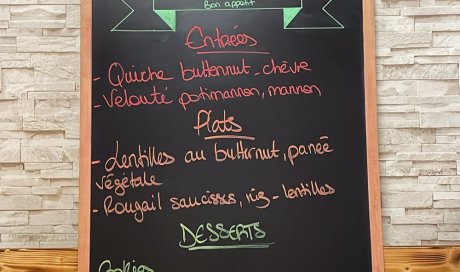 Bon appétit
Entrées
- Quiche butternut - chèvre
- Velouté potimarron, marron
Plats
- Lentilles au butternut, panée
végétale
- Rougail saucisses, riz - lentilles
DESSERTS
Cookies